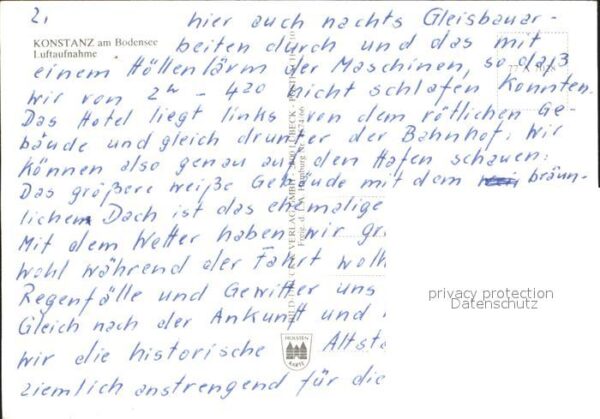 2.
hier auch nachts Gleisbauar-
KONSTANZ am Bodensee
Luftaufnahme
beiten durch und das mit
einem Höllenlärm der Maschinen, so daß
wir von 2⁰⁰ - 4²⁰ nicht schlafen konnten.
Das Hotel liegt links von dem rötlichen Ge-
bäude und gleich drunter der Bahnhof. Wir
können also genau auf den Hafen schauen.
Das größere weiße Gebäude mit dem bräun-
lichem Dach ist das ehemalige
Mit dem Wetter haben wir
wohl während der Fahrt
Regenfälle und Gewitter uns
Gleich nach der Ankunft und
wir die historische Altsta
ziemlich anstrengend für die
HOLSTEN
KARTE
privacy protection
Datenschutz